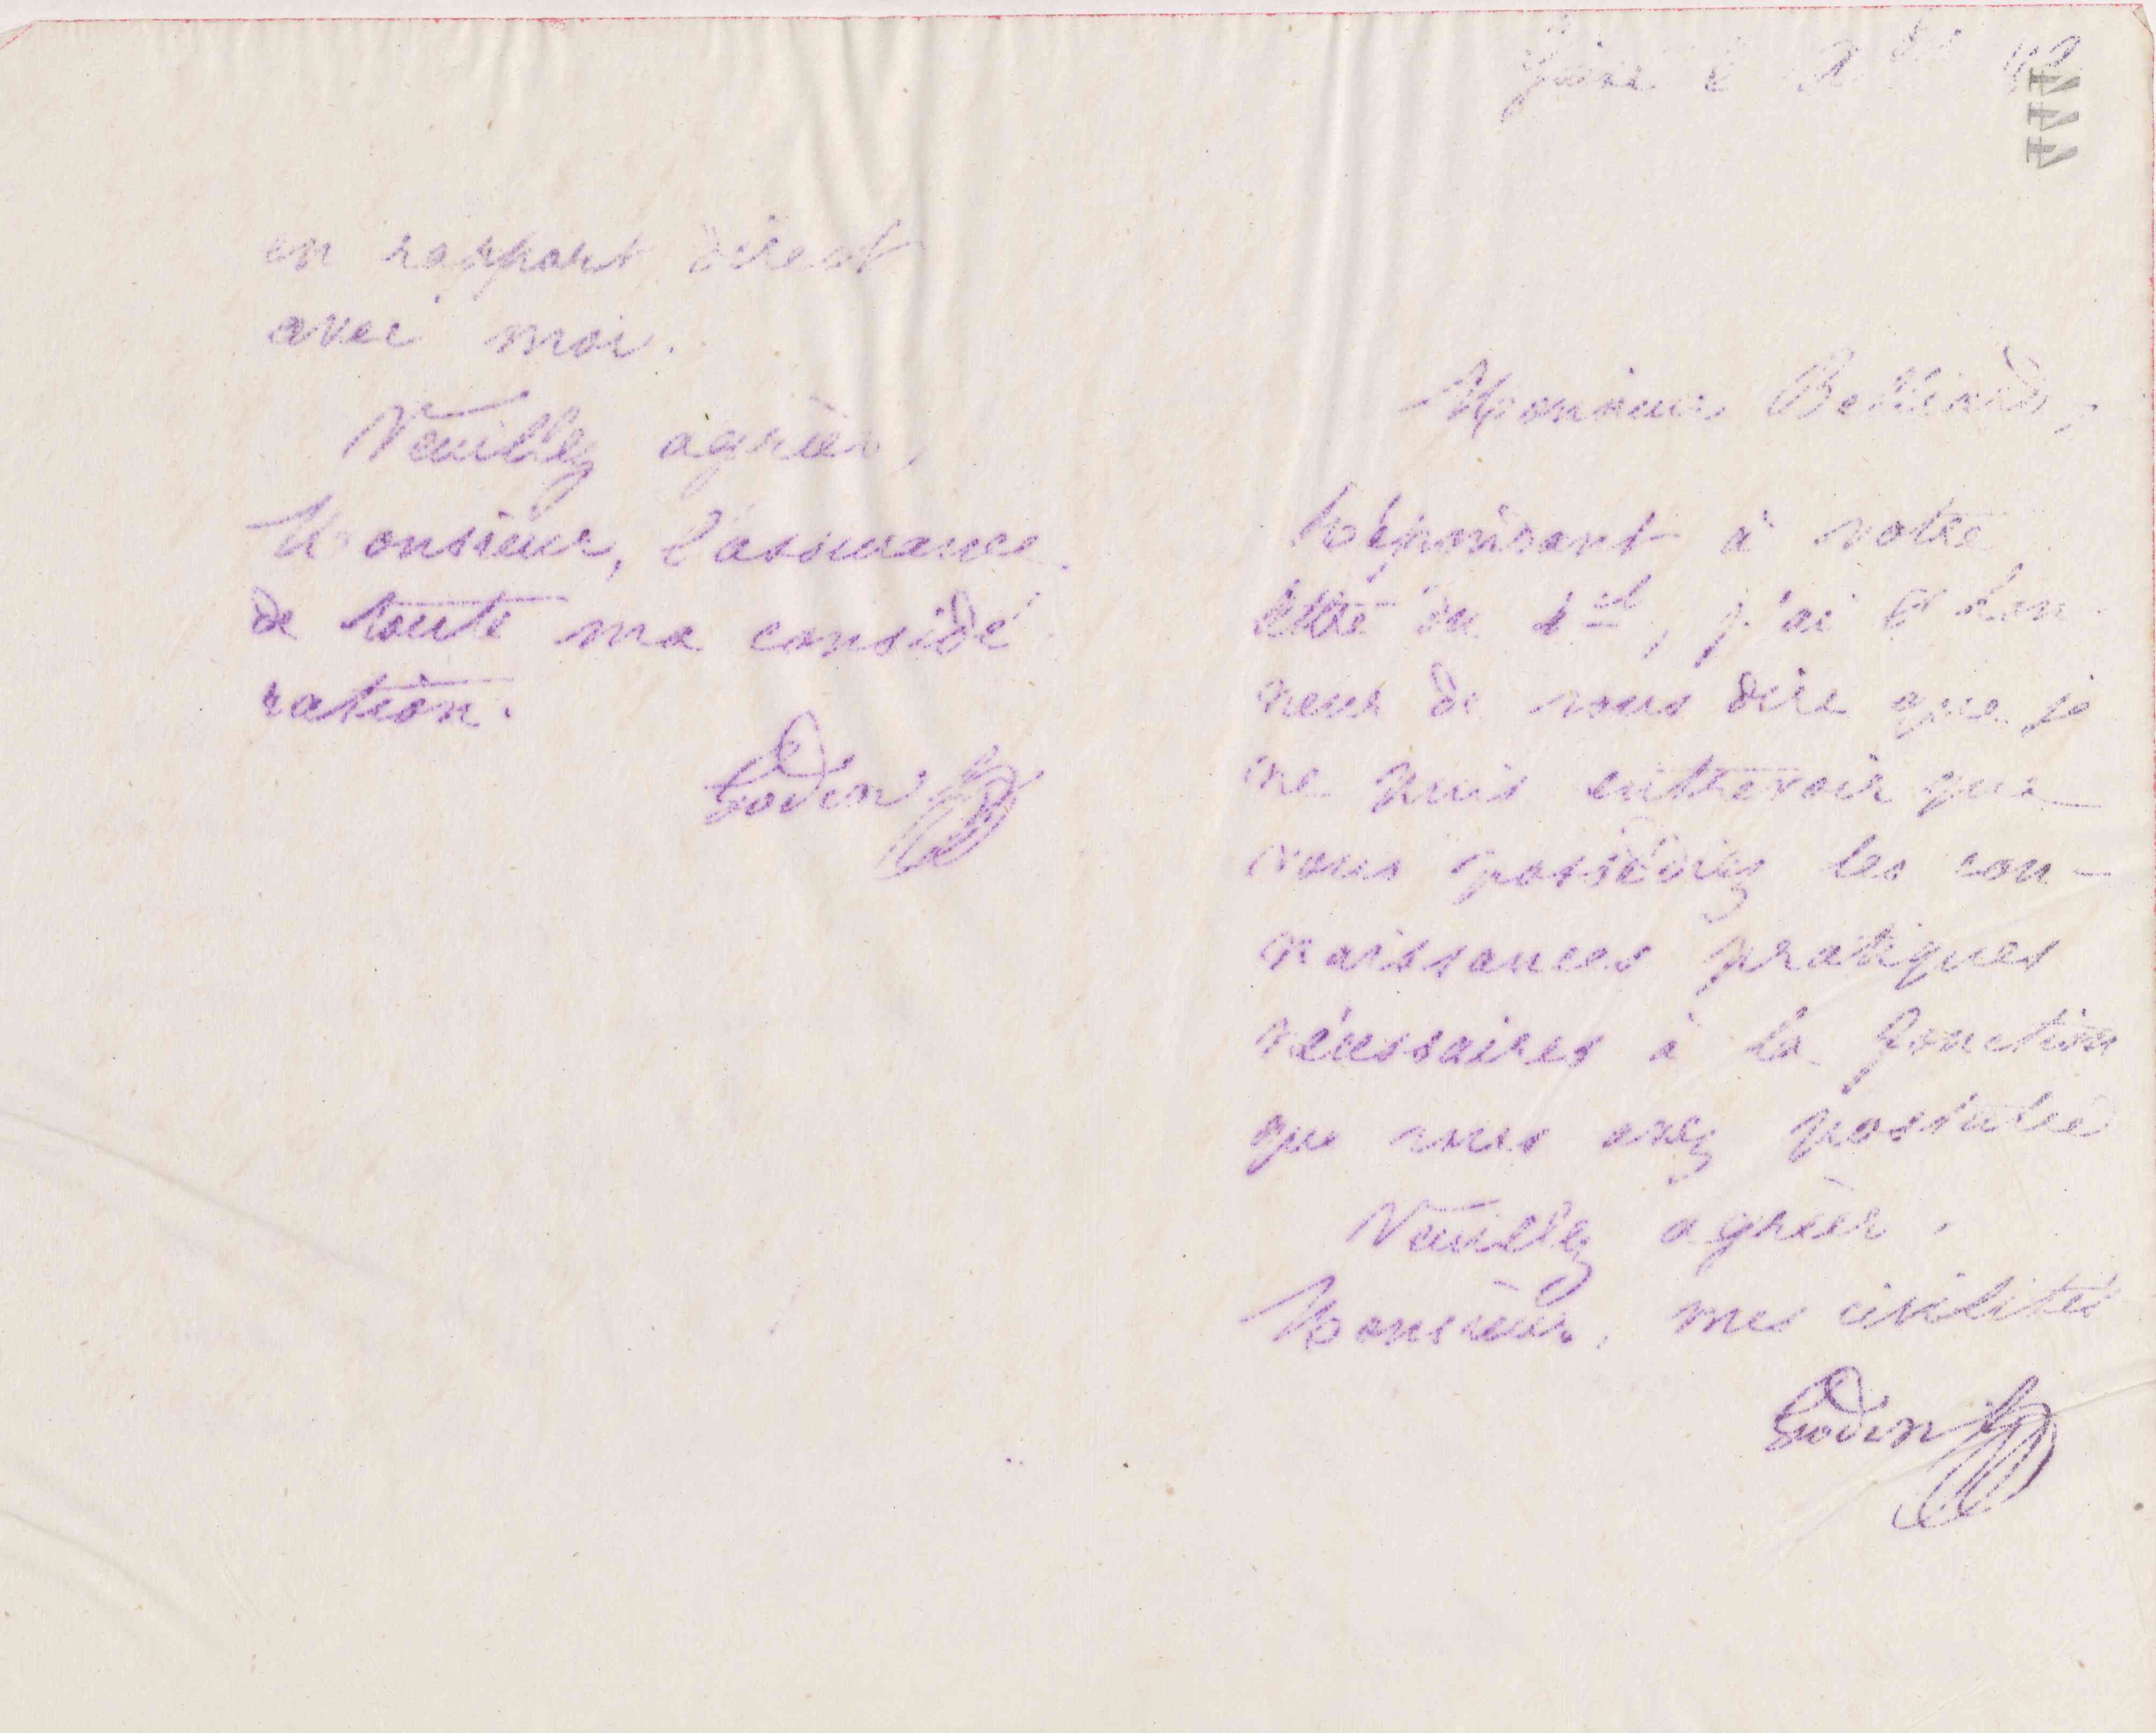 en rapport direct
avec moi.
Veuillez agréer,
Monsieur, l'assurance
de toute ma considé
ration.
Godin
444
Monsieur
Répondant à votre
lettre du 1er, j'ai l'hon
neur de vous dire que je
ne puis entrevoir que
vous possédiez les con-
naissances pratiques
nécessaires à la fonction
que vous avez postulée
Veuillez agréer,
Monsieur, mes civilités
Godin